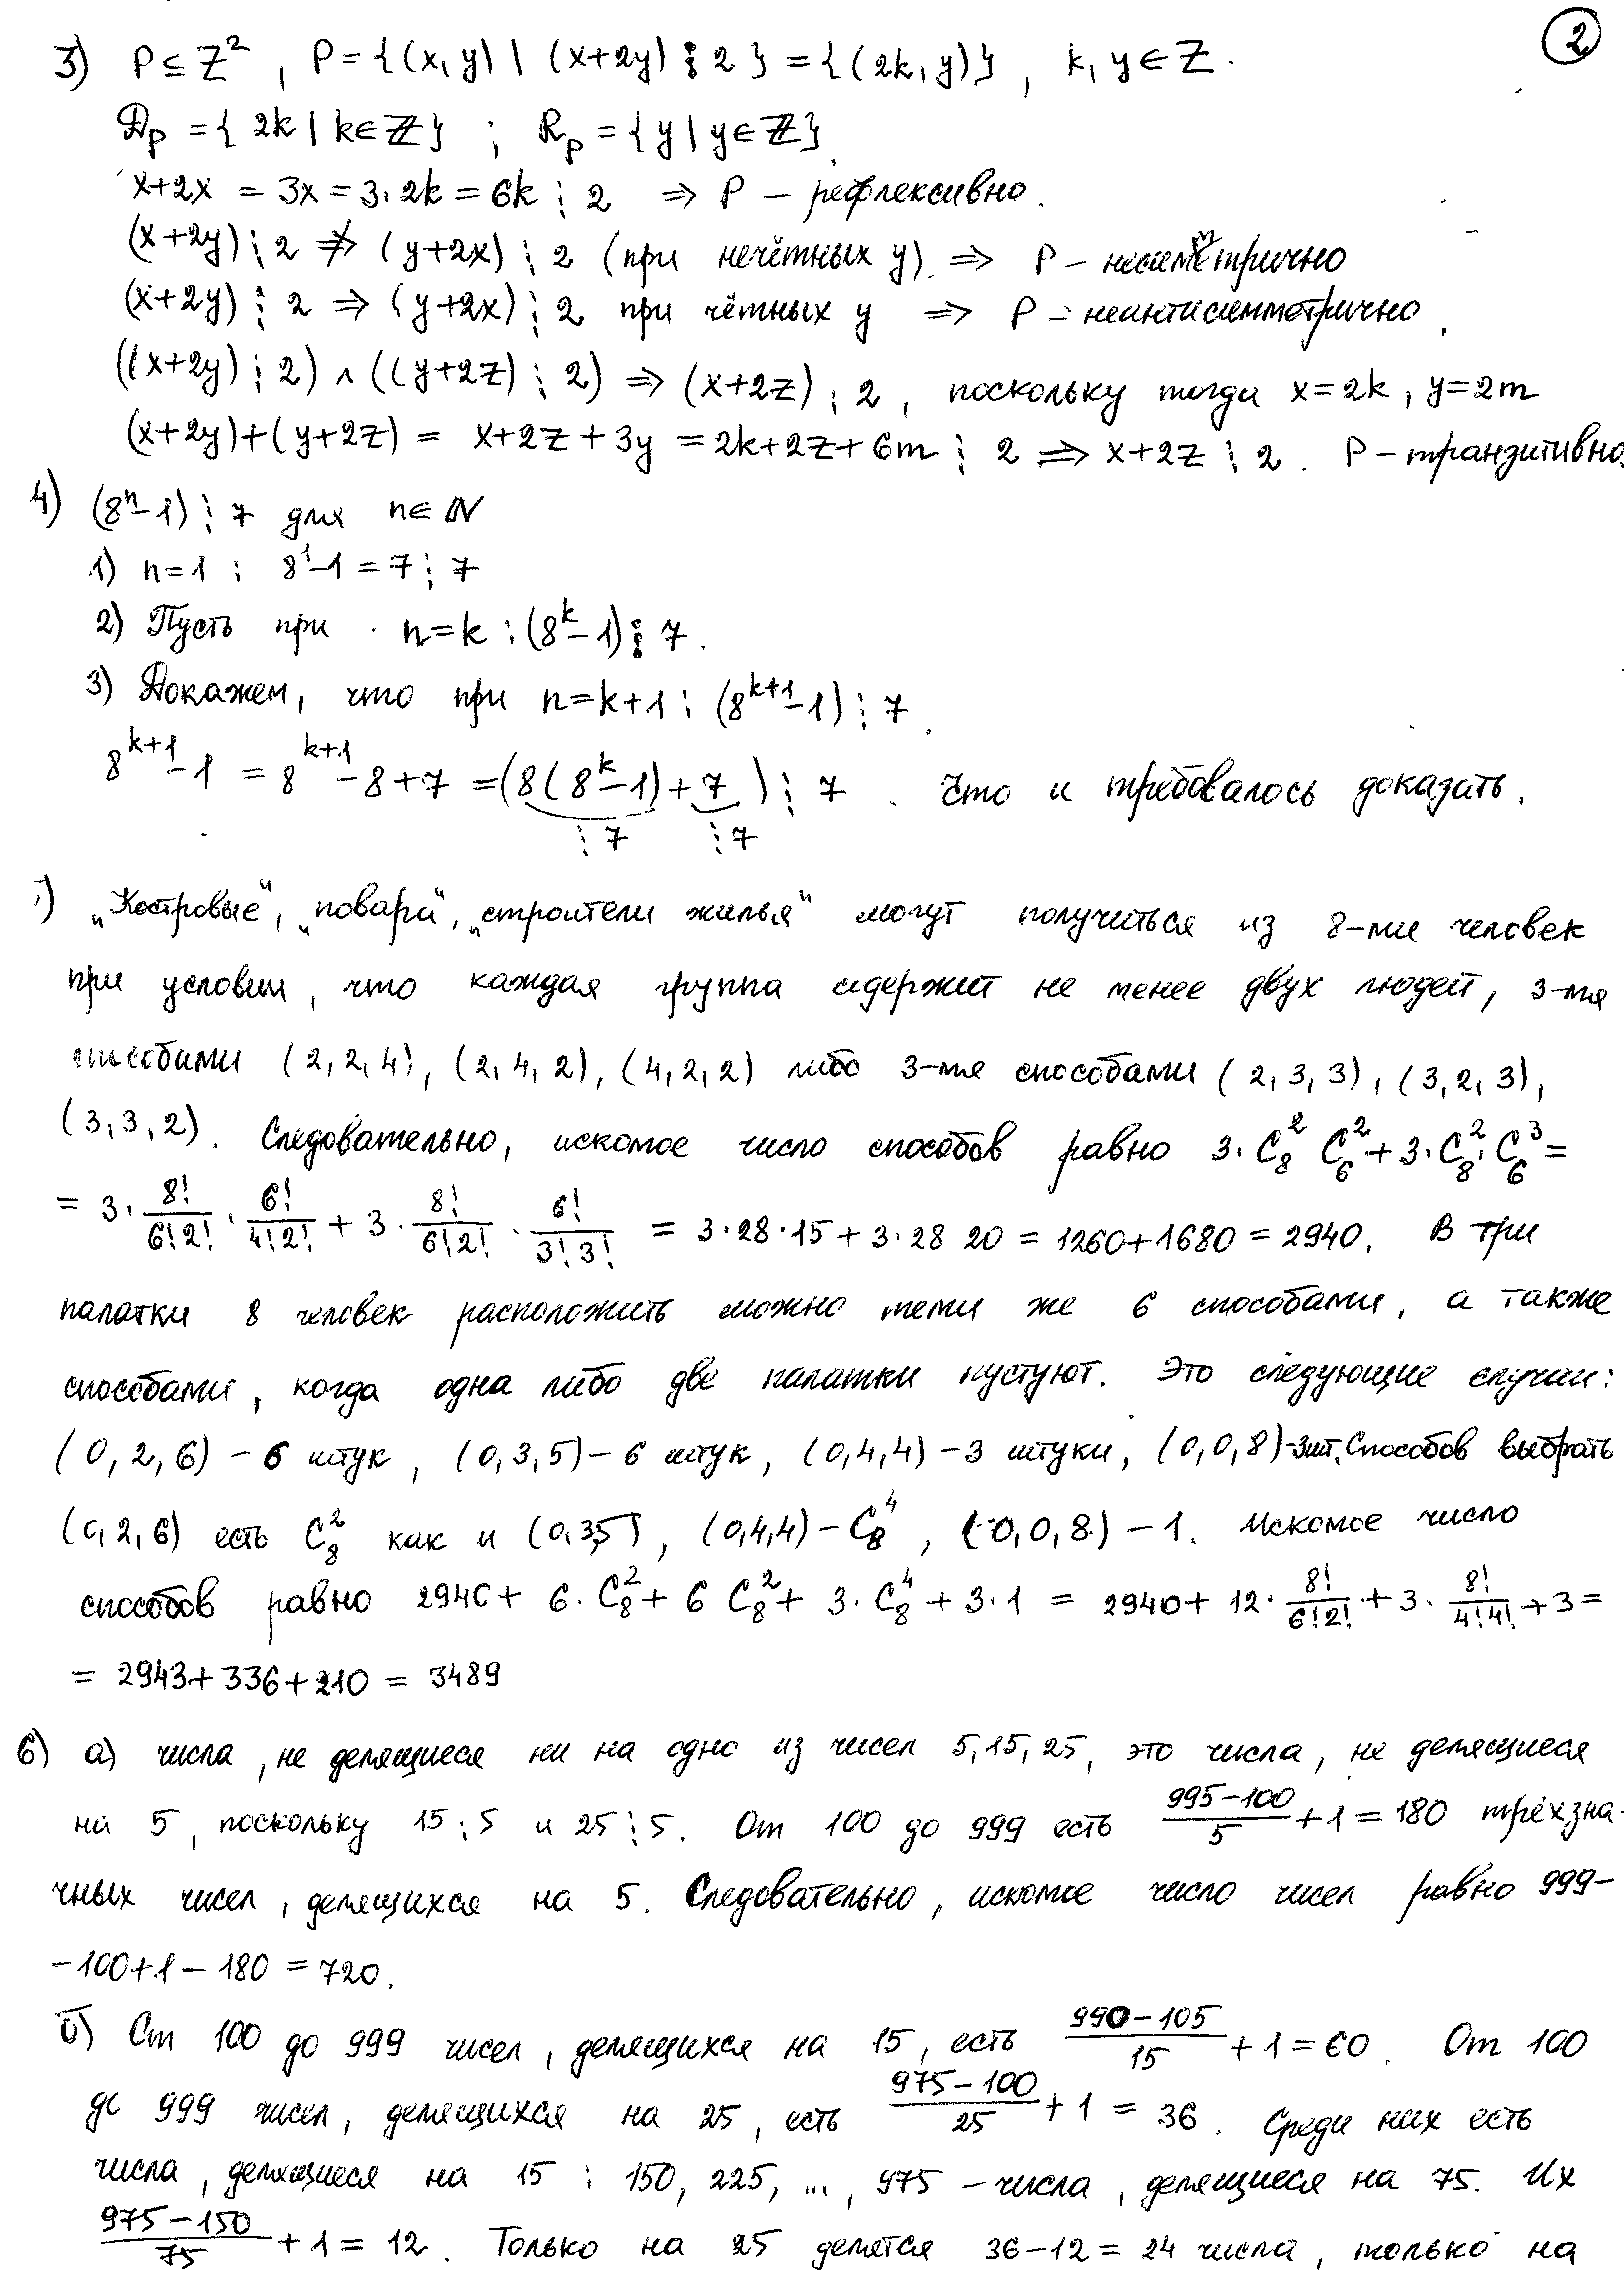 2
3) P ⊆ Z², P = {(x, y) | (x+2y) ⋮ 2} = {(2k, y)}, k, y ∈ Z.
D_P = {2k | k ∈ Z}; R_P = {y | y ∈ Z}.
x+2x = 3x = 3·2k = 6k ⋮ 2 ⇒ P – рефлексивно.
(x+2y) ⋮ 2 ⇏ (y+2x) ⋮ 2 (при нечётных y). ⇒ P – несимметрично
(x+2y) ⋮ 2 ⇒ (y+2x) ⋮ 2 при чётных y ⇒ P – неантисимметрично.
((x+2y) ⋮ 2) ∧ ((y+2z) ⋮ 2) ⇒ (x+2z) ⋮ 2, поскольку тогда x=2k, y=2m
(x+2y)+(y+2z) = x+2z+3y = 2k+2z+6m ⋮ 2 ⇒ x+2z ⋮ 2. P – транзитивно.
4) (8ⁿ–1) ⋮ 7 для n ∈ N
1) n=1: 8¹–1 = 7 ⋮ 7
2) Пусть при n=k: (8ᵏ–1) ⋮ 7.
3) Докажем, что при n=k+1: (8ᵏ⁺¹–1) ⋮ 7.
8ᵏ⁺¹–1 = 8ᵏ⁺¹–8+7 = (8(8ᵏ–1)+7) ⋮ 7. Что и требовалось доказать.
⋮ 7 ⋮ 7
) „Костровые", „повара", „строители жилья" могут получиться из 8-ми человек
при условии, что каждая группа содержит не менее двух людей, 3-мя
способами (2,2,4), (2,4,2), (4,2,2) либо 3-мя способами (2,3,3), (3,2,3),
(3,3,2). Следовательно, искомое число способов равно 3·C₈² C₆² + 3·C₈²·C₆³ =
= 3 · 8!/(6!2!) · 6!/(4!2!) + 3 · 8!/(6!2!) · 6!/(3!3!) = 3·28·15 + 3·28 20 = 1260+1680 = 2940. В три
палатки 8 человек расположить можно теми же 6 способами, а также
способами, когда одна либо две палатки пустуют. Это следующие случаи:
(0,2,6) – 6 штук, (0,3,5) – 6 штук, (0,4,4) – 3 штуки, (0,0,8) – 3шт. Способов выбрать
(0,2,6) есть C₈² как и (0,3,5), (0,4,4) – C₈⁴, (0,0,8) – 1. Искомое число
способов равно 2940 + 6·C₈² + 6 C₈² + 3·C₈⁴ + 3·1 = 2940 + 12 · 8!/(6!2!) + 3 · 8!/(4!4!) + 3 =
= 2943+336+210 = 3489
6) а) числа, не делящиеся ни на одно из чисел 5, 15, 25, это числа, не делящиеся
на 5, поскольку 15 ⋮ 5 и 25 ⋮ 5. От 100 до 999 есть (995–100)/5 + 1 = 180 трёхзна-
чных чисел, делящихся на 5. Следовательно, искомое число чисел равно 999–
–100+1–180 = 720.
б) От 100 до 999 чисел, делящихся на 15, есть (990–105)/15 + 1 = 60. От 100
до 999 чисел, делящихся на 25, есть (975–100)/25 + 1 = 36. Среди них есть
числа, делящиеся на 15: 150, 225, ..., 975 – числа, делящиеся на 75. Их
(975–150)/75 + 1 = 12. Только на 25 делятся 36–12 = 24 числа, только на